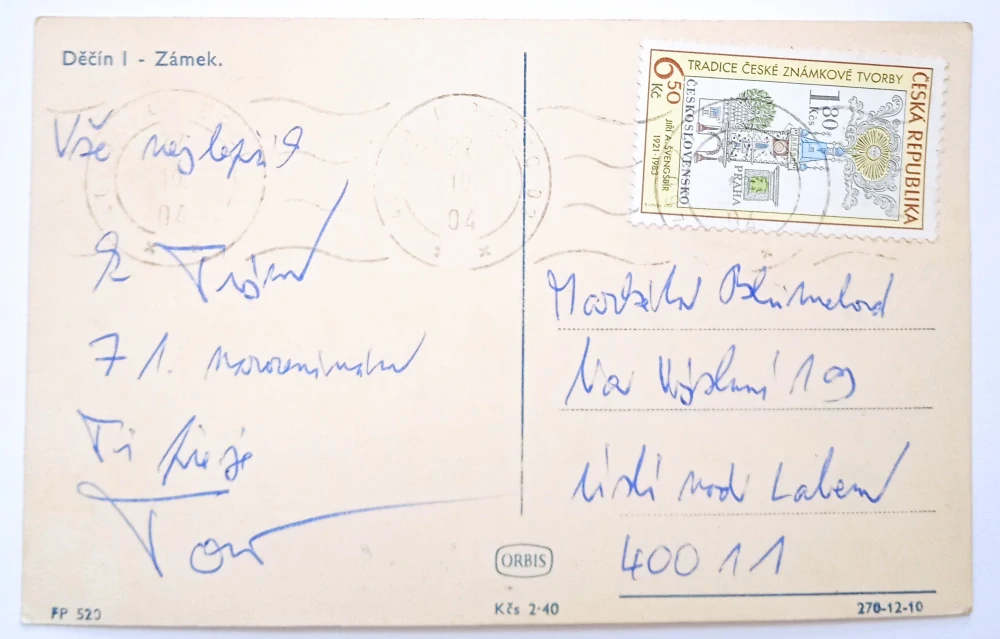 Děčín I - Zámek.
Vše nejlepší
k Tvým
71. narozeninám
Ti přeje
Tom
ČESKÁ REPUBLIKA
TRADICE ČESKÉ ZNÁMKOVÉ TVORBY
6 50 Kč
JIŘÍ A. ŠVENGSBÍR
1921-1983
ČESKOSLOVENSKO
1 80 Kčs
PRAHA
04
04
Markéta
Na Výsluní 19
Ústí nad Labem
400 11
ORBIS
FP 520
Kčs 2·40
270-12-10